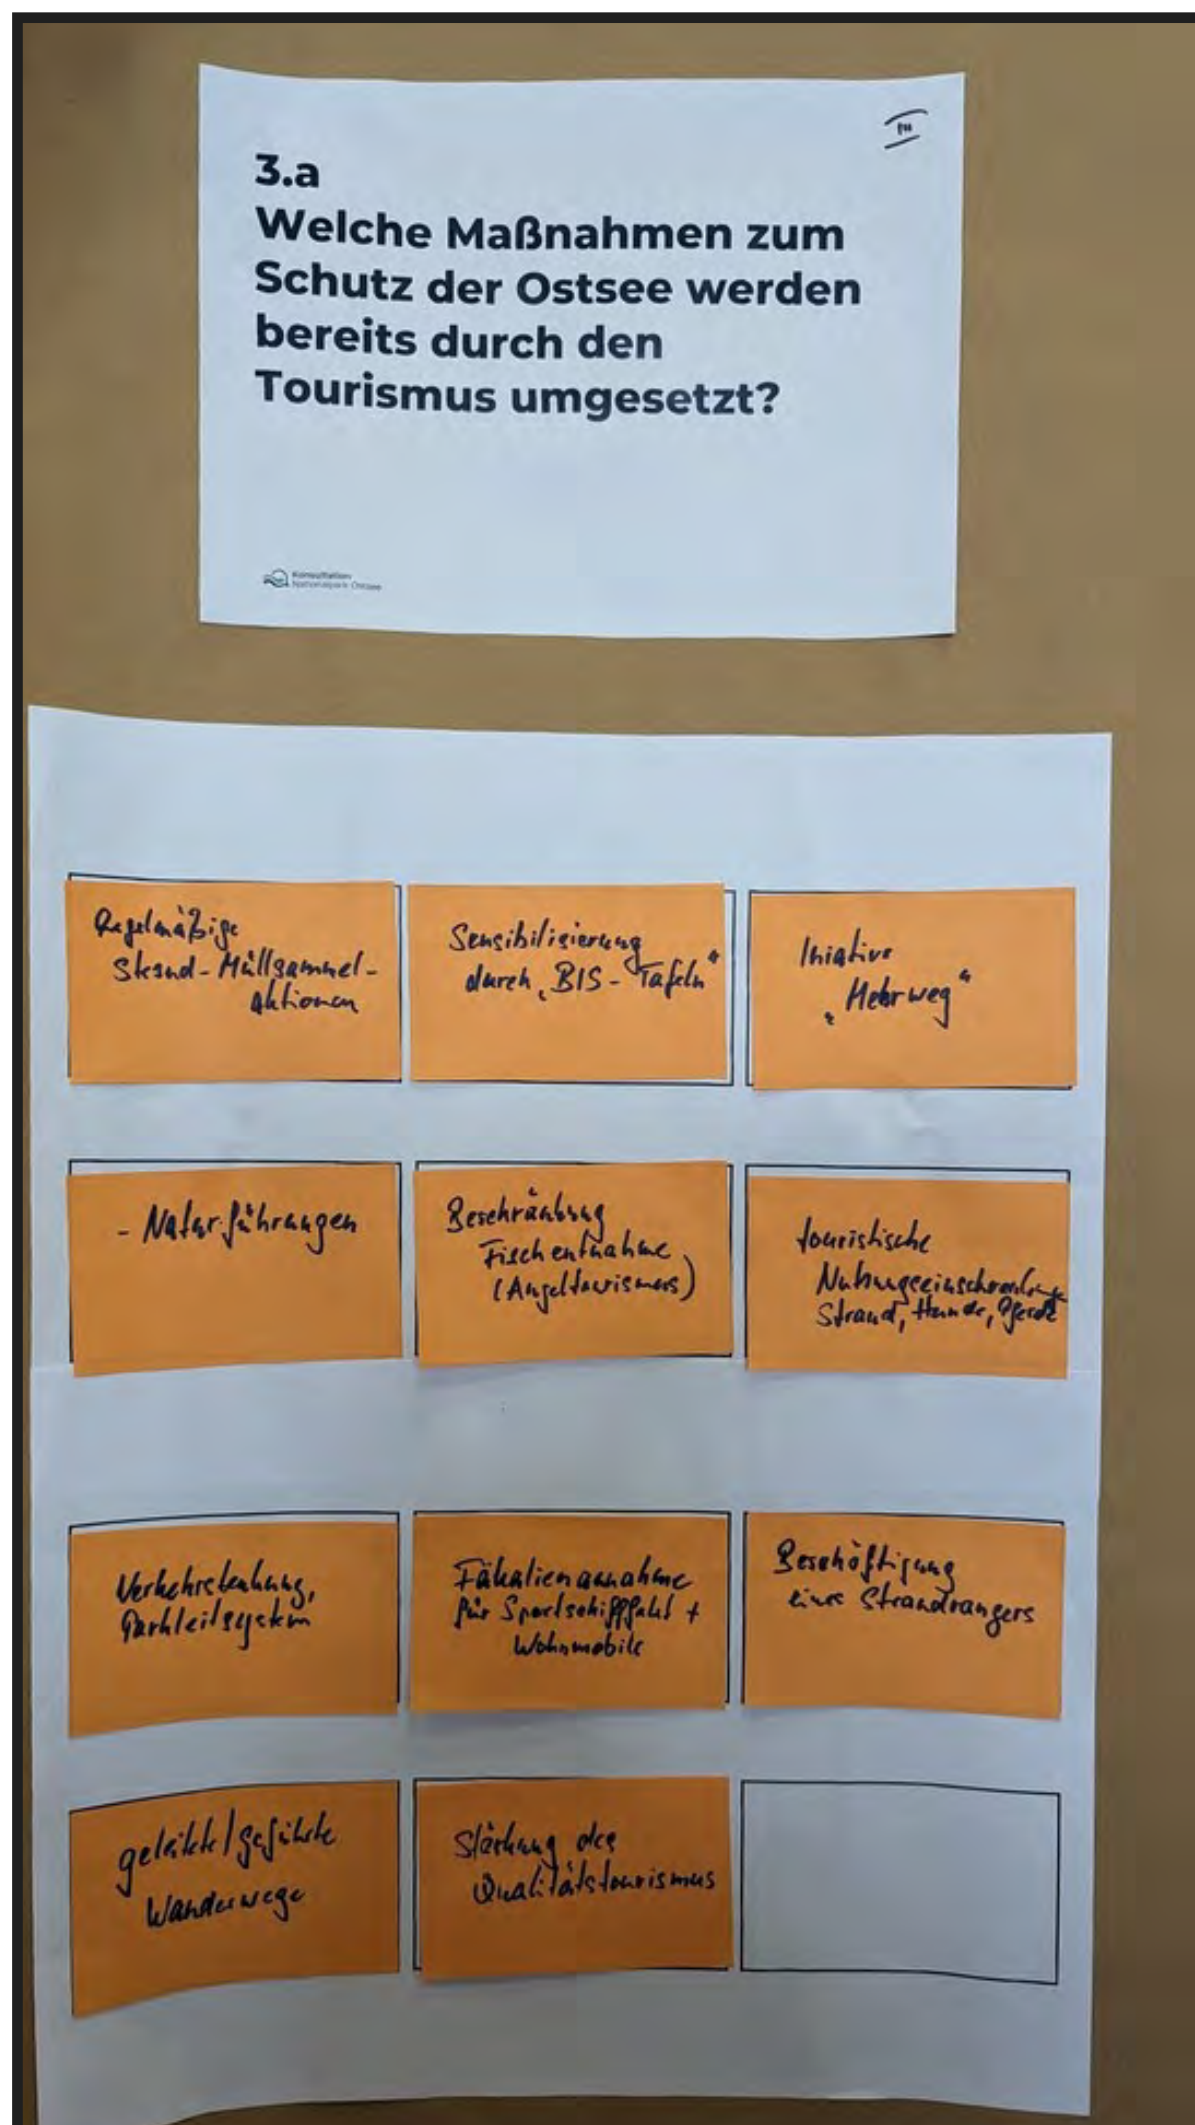 3.a
Welche Maßnahmen zum
Schutz der Ostsee werden
bereits durch den
Tourismus umgesetzt?
Konsultation
Nationalpark Ostsee
Regelmäßige
Strand-Müllsammel-
aktionen
Sensibilisierung
durch „BIS-Tafeln“
Iniative
„Mehrweg“
- Naturführungen
Beschränkung
Fischentnahme
(Angeltourismus)
touristische
Nutzungseinschränkung
Strand, Hunde, Pferde
Verkehrslenkung,
Parkleitsystem
Fäkalienannahme
für Sportschifffahrt +
Wohnmobile
Beschäftigung
eines Strandrangers
geleitete/geführte
Wanderwege
Stärkung des
Qualitätstourismus